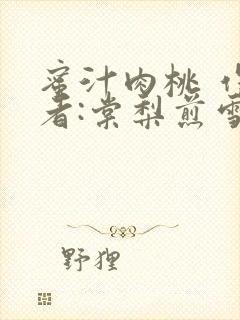 蜜汁肉桃 作
者:棠梨煎雪
野狸